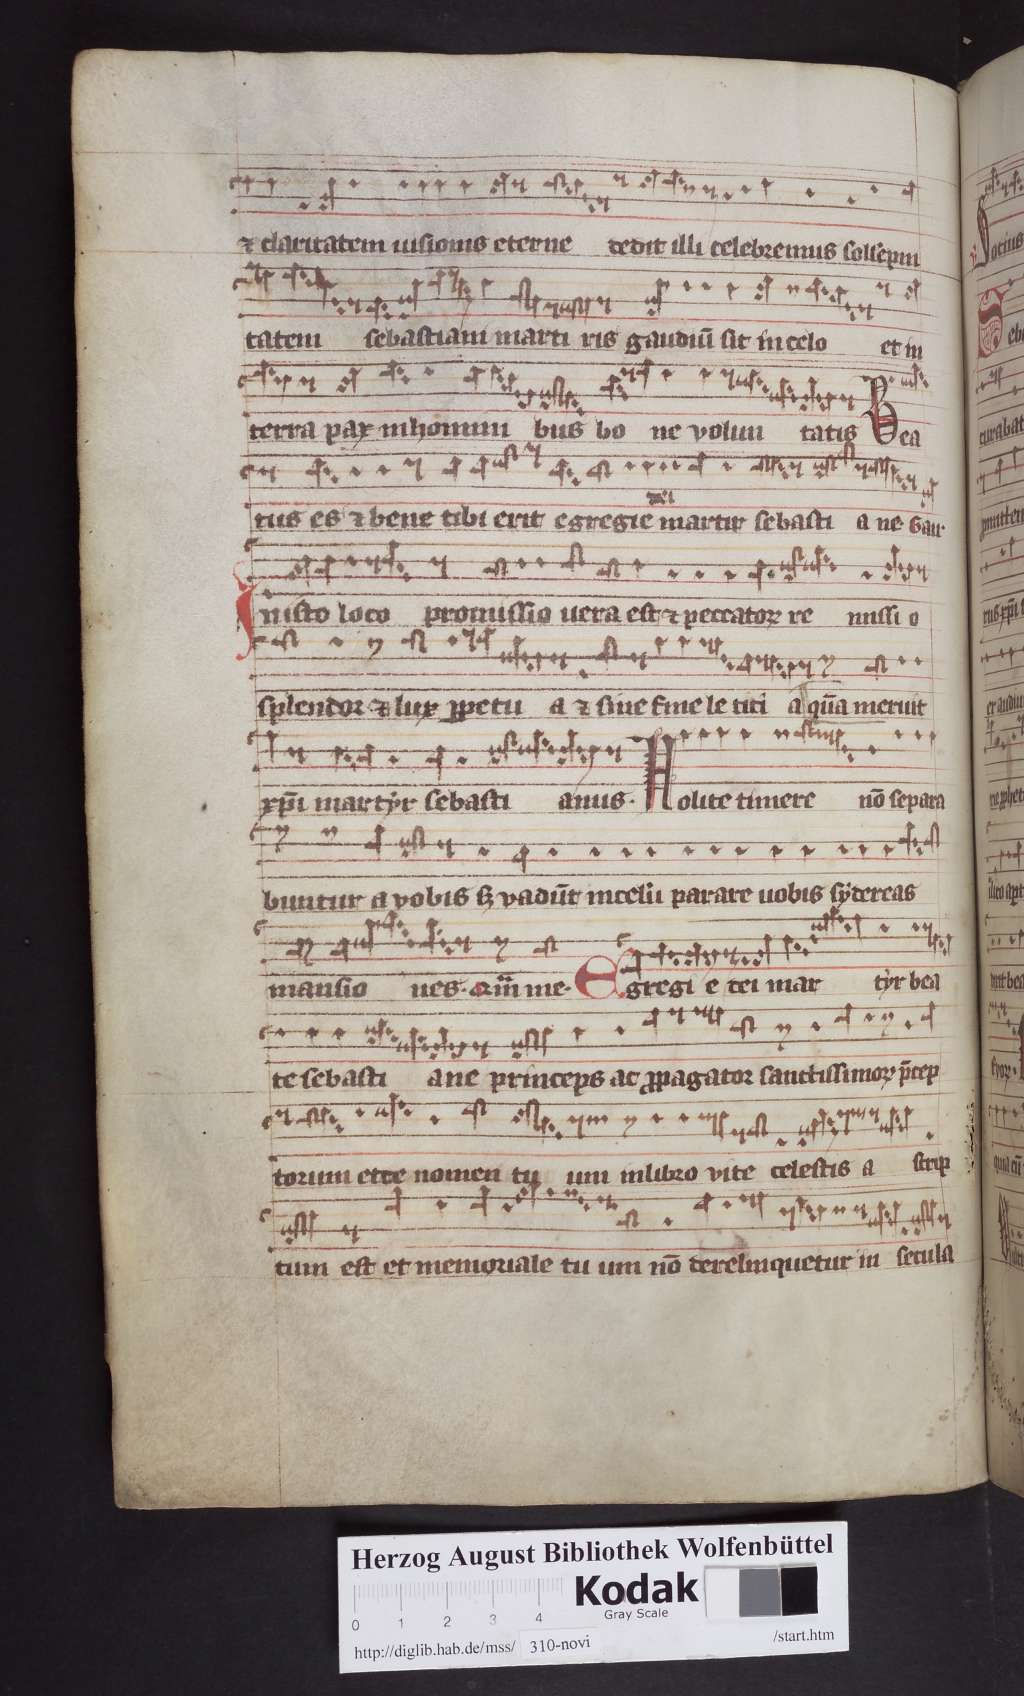 ⁊ claritatem uisionis eterne dedit illi celebremus sollẽpni
tatem sebastiani marti ris gaudiũ sit in celo et in
terra pax in homini bus bo ne volun tatis Bea
tus es ⁊ bene tibi erit egregie xp̃i martir sebasti a ne Gau
In isto loco promissio uera est ⁊ peccatoꝝ re missi o
splendor ⁊ lux ꝑpetu a ⁊ sine fine le titi a quã meruit
xp̃i martẏr sebasti anus. Nolite timere nõ separa
buntur a vobis sꝫ vadũt in celũ parare uobis sẏdereas
mansio nes. Qm̃ me. Egregi e dei mar tẏr bea
te sebasti ane princeps ac ꝓpagator sanctissimoꝝ p̃cep
torum ecce nomen tu um in libro vite celestis a scrip
tum est et memoriale tu um nõ derelinquetur in secula
Herzog August Bibliothek Wolfenbüttel
Kodak
Gray Scale
0 1 2 3 4
http://diglib.hab.de/mss/ 310-novi /start.htm